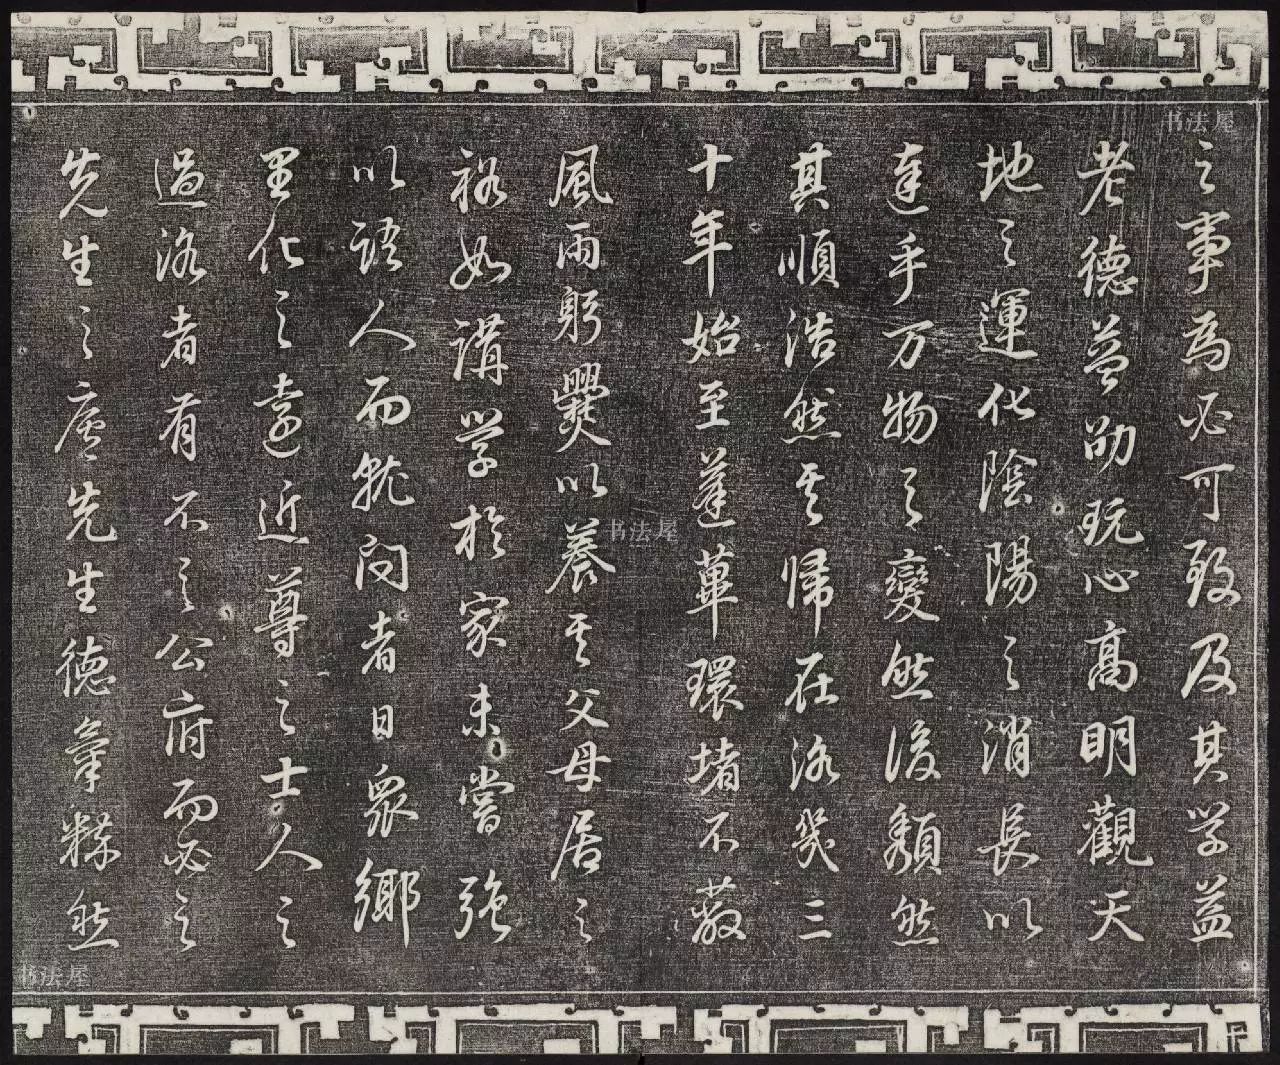 之事為必可致及其学益
老德益劭玩心高明觀天
地之運化陰陽之消長以
達乎万物之變然後頹然
其順浩然其歸在洛幾三
十年始至蓬蓽環堵不蔽
風雨躬爨以養其父母居之
裕如講学於家未嘗強
以語人而就问者日眾鄉
里化之遠近尊之士人之
過洛者有不之公府而必之
先生之廬先生德氣粹然
书法屋
书法屋
书法屋